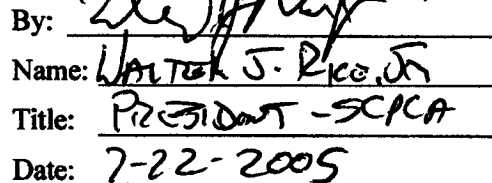 By:
Name: WALTER J. RICE, JR
Title: PRESIDENT - SCPCA
Date: 7-22-2005